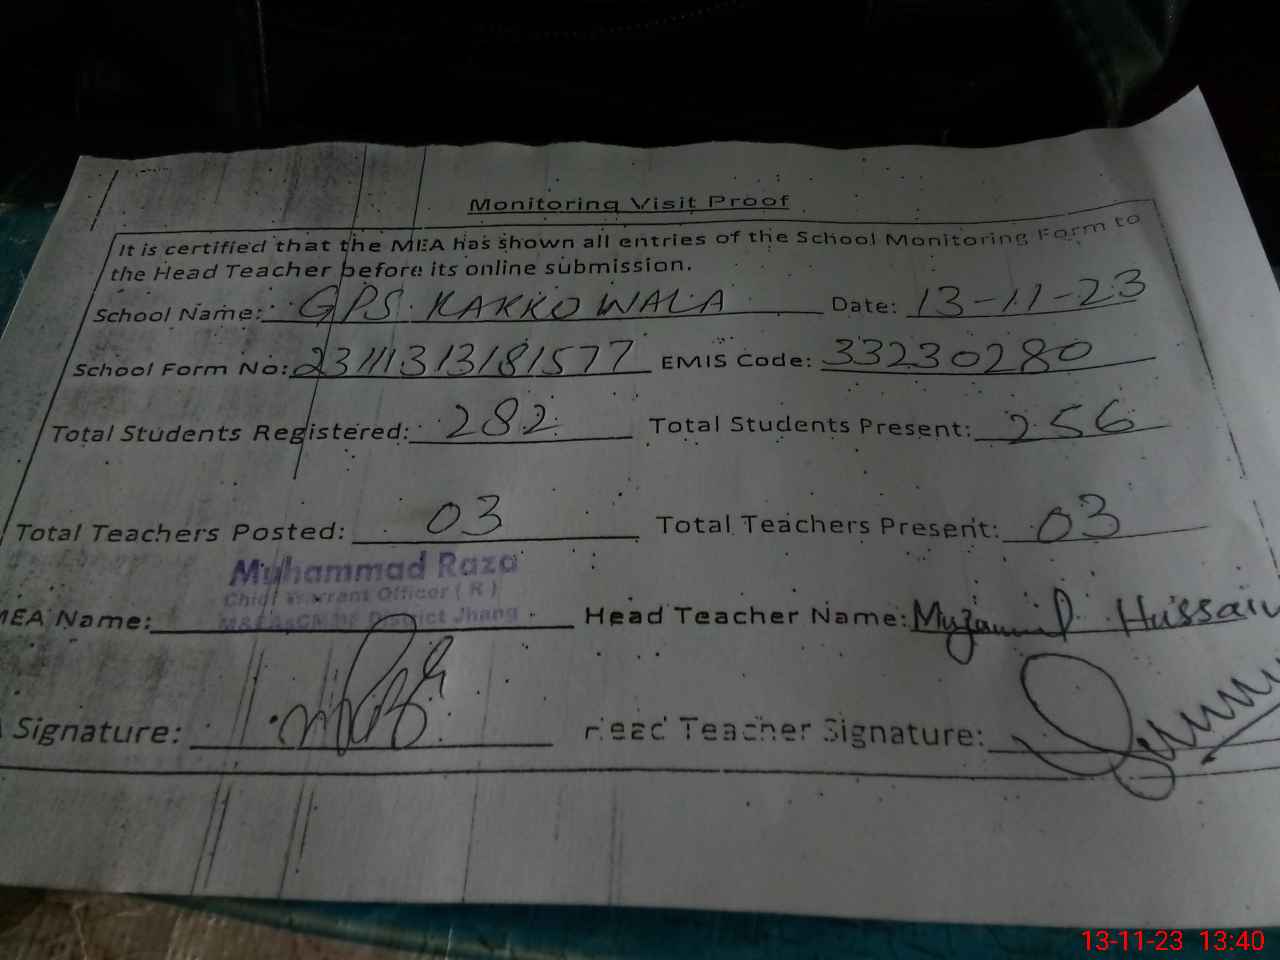 Monitoring Visit Proof
It is certified that the MEA has shown all entries of the School Monitoring Form to
the Head Teacher before its online submission.
School Name: GPS KAKKO WALA Date: 13-11-23
School Form No: 23111313181577 EMIS Code: 33230280
Total Students Registered: 282 Total Students Present: 256
Total Teachers Posted: 03 Total Teachers Present: 03
Muhammad Raza
Chief Warrant Officer (R)
District Jhang
MEA Name: Head Teacher Name: Muzammil Hussain
Signature: Head Teacher Signature:
13-11-23 13:40